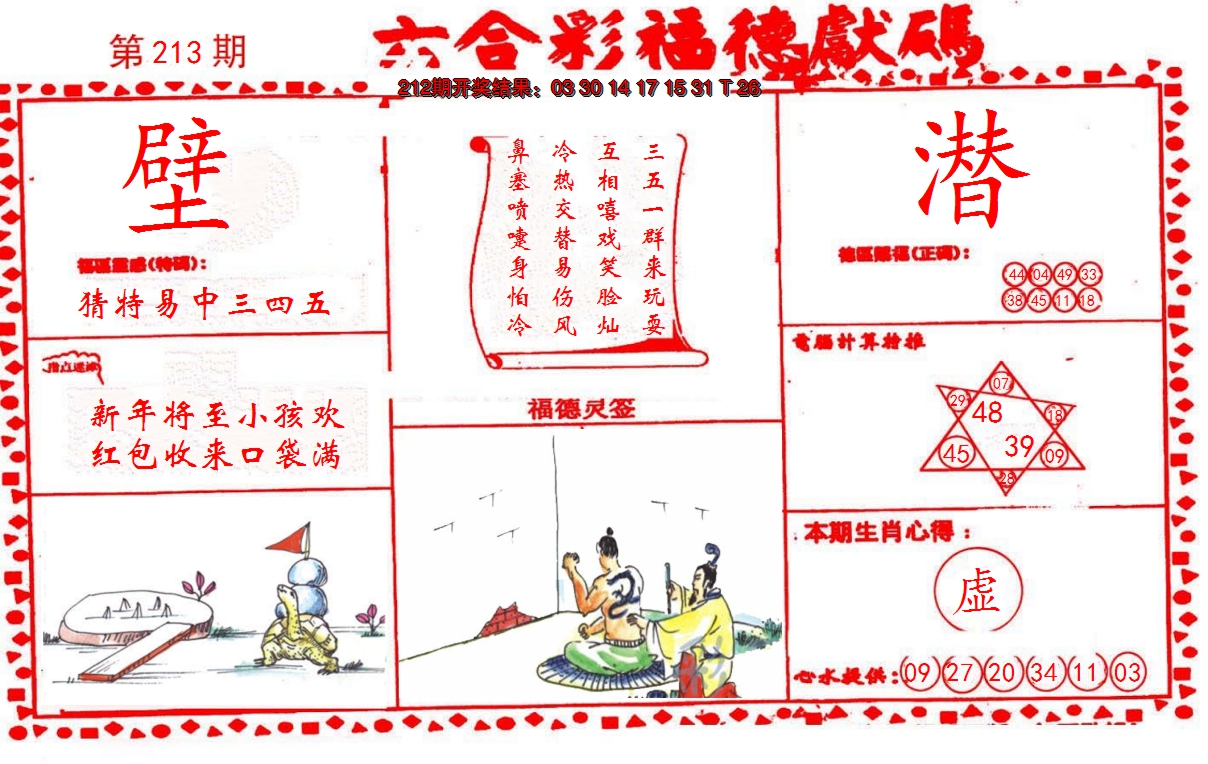 第213期
六合彩福德獻碼
212期开奖结果：03 30 14 17 15 31 T 26
壁
猜特易中三四五
三五一群来玩耍
互相嘻戏笑脸灿
冷热交替易伤风
鼻塞喷嚏身怕冷
潜
德區賜福(正码)：
44 04 49 33
38 45 11 18
新年将至小孩欢
红包收来口袋满
福德灵签
電腦計算檢推
07
29 48 18
45 39 09
28
本期生肖心得：
虚
心水提供：09 27 20 34 11 03